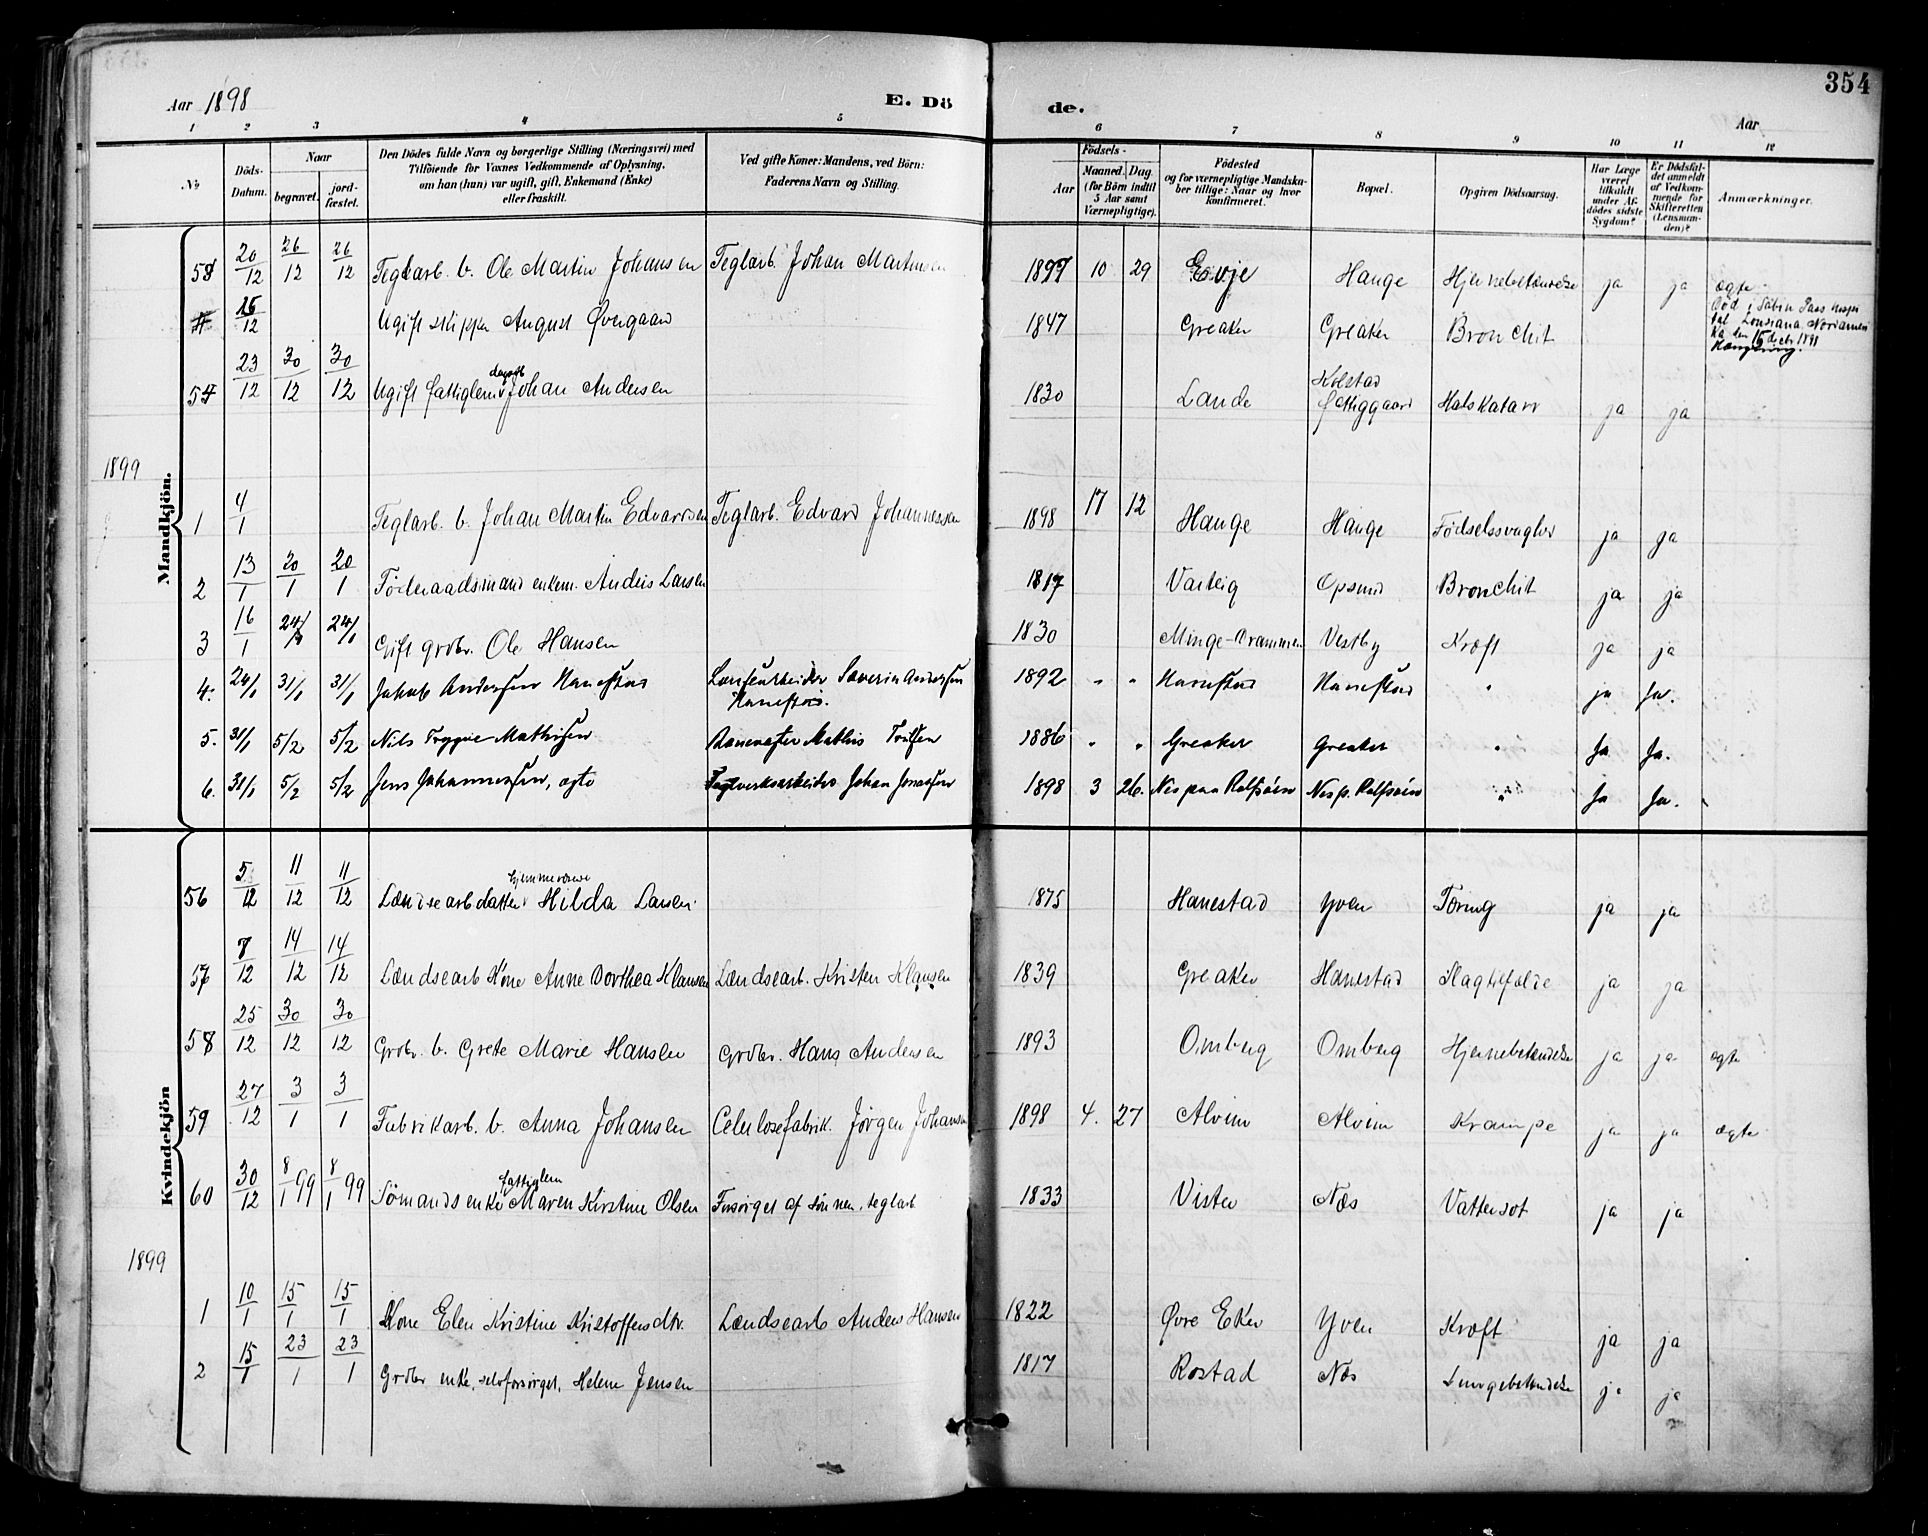 354
Aar 1898 E. Dö de. Aar
1 2 3 4 5 6 7 8 9 10 11 12
No
Döds-Datum.
Naar
begravet. jord-fæstet.
Den Dödes fulde Navn og borgerlige Stilling (Næringsvei) med
Tilföiende for Voxnes Vedkommende af Oplysning,
om han (hun) var ugift, gift, Enkemand (Enke)
eller fraskilt.
Ved gifte Koner: Mandens, ved Börn:
Faderens Navn og Stilling.
Födsels-
Aar
Maaned. Dag
(for Börn indtil
5 Aar samt
Værnepligtige).
Födested
og for værnepligtige Mandska-
ber tillige: Naar og hvor
Konfirmeret.
Bopæl.
Opgiven Dödsaarsag.
Har Læge
været
tilkaldt
under Af-
dödes sidste
Sygdom?
Er Dödsfal-
det anmeldt
af Vedkom-
mende for
Skifteretten
(Lensman-
den)?
Anmærkninger.
Mandkjön.
20/12 26/12 26/12 Teglarb. b. Ole Martin Johansen Teglarb. Johan Martinsen 1897 10 29 Evje Hauge Hjernebetændelse ja ja ægte
12 Ugift skipper August Øvergaard 1847 Greaker Greaker Bronchit Död i Sabin Pass hospi
tal Louisiana, Nordameri
ka den 15 decbr 1898
54 23/12 30/12 30/12 Ugift fattiglem dagarb Johan Andersen 1830 Lande Kolstad Fattiggaard Halskatarr ja ja
1899
1 4/1 Teglarb. b. Johan Martin Edvardsen Teglarb. Edvard Johannessen 1898 12 Hauge Hauge Födselssvaghed ja ja
2 13/1 20/1 20/1 Föderaadsmand enkem. Andreis Larsen 1817 Varteig Opsund Bronchit ja ja
3 16/1 24/1 24/1 Gift grdbr. Ole Hansen 1830 Minge-Drammen Vestby Kræft ja ja
4. 24/1 31/1 31/1 Jakob Andersen Hanestad Lænsearbeider Severin Andersen Hanestad. 1892 " " Hanestad Hanestad " ja Ja.
5. 31/1 5/2 5/2 Nils Trygve Mathisen Banevogter Mathis 1886 " " Greaker Greaker " Ja Ja.
6. 31/1 5/2 5/2 Jens Johannessen, ægte Teglverksarbeider Johan Jonassen 1898 3 26. Nes paa Rolfsøen Nes p. Rolfsøen " Ja Ja.
Kvindekjön
56 5/12 11/12 11/12 Lændsearb datter hjemmeværende Hilda Larsen. 1875 Hanestad Yven Tæring ja ja
57 7/12 14/12 14/12 Lændsearb Kone Anne Dorthea Klausen Lændsearb. Kristen Klausen 1839 Greaker Hanestad Slagtilfælde ja ja
58 25/12 30/12 30/12 Grdbr. b. Grete Marie Hansen Grdbr. Hans Andersen 1893 Omberg Omberg Hjernebetændelse ja ja ægte
59 27/12 3/1 3/1 Fabrikarb. b. Anna Johansen Celulosefabrik. Jörgen Johansen 1898 4. 27 Alvim Alvim Krampe ja ja ægte
60 30/12 8/1 99 8/1 99 Sömands enke fattiglem Maren Kirstine Olsen Forsörget af sönnen, teglarb 1833 Vister Næs Vattersot ja ja
1899
1 10/1 15/1 15/1 Kone Elen Kristine Kristoffersdtr. Lændsearb Anders Hansen 1822 Øvre Eker Yven Kræft ja ja
2 15/1 23/1 23/1 Grdbr enke, selvforsörget, Helene Jensen 1817 Rostad Næs Lungebetændelse ja ja